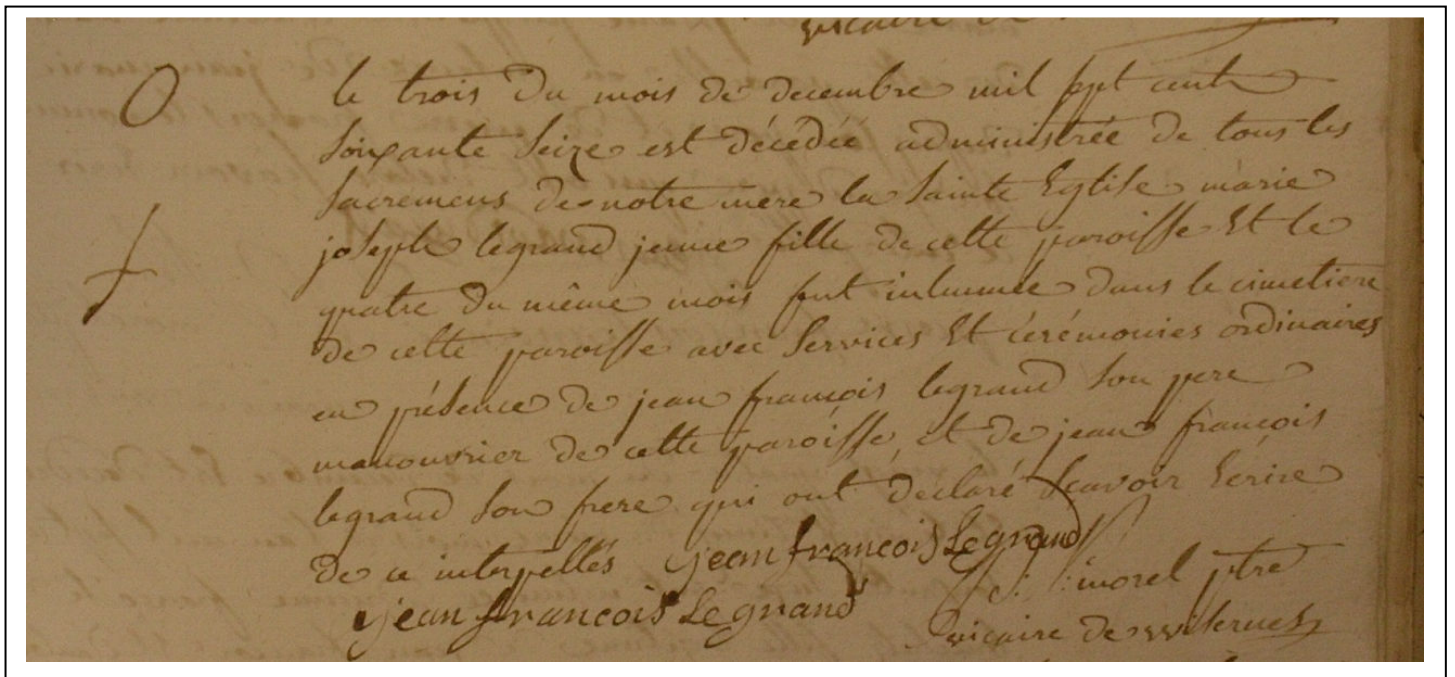 vicaire de
le trois du mois de decembre mil sept cent
soixante seize est décédée administrée de tous les
sacremens de notre mere la sainte Eglise marie
joseph legrand jeune fille de cette paroisse Et le
quatre du même mois fut inhumée dans le cimetiere
de cette paroisse avec services Et cérémonies ordinaires
en présence de jean françois legrand son pere
manouvrier de cette paroisse, et de jean françois
legrand son frere qui ont déclaré scavoir Ecrire
de ce interpellés jean françois Legrand
jean francois Legrand morel ptre
vicaire de wisernes